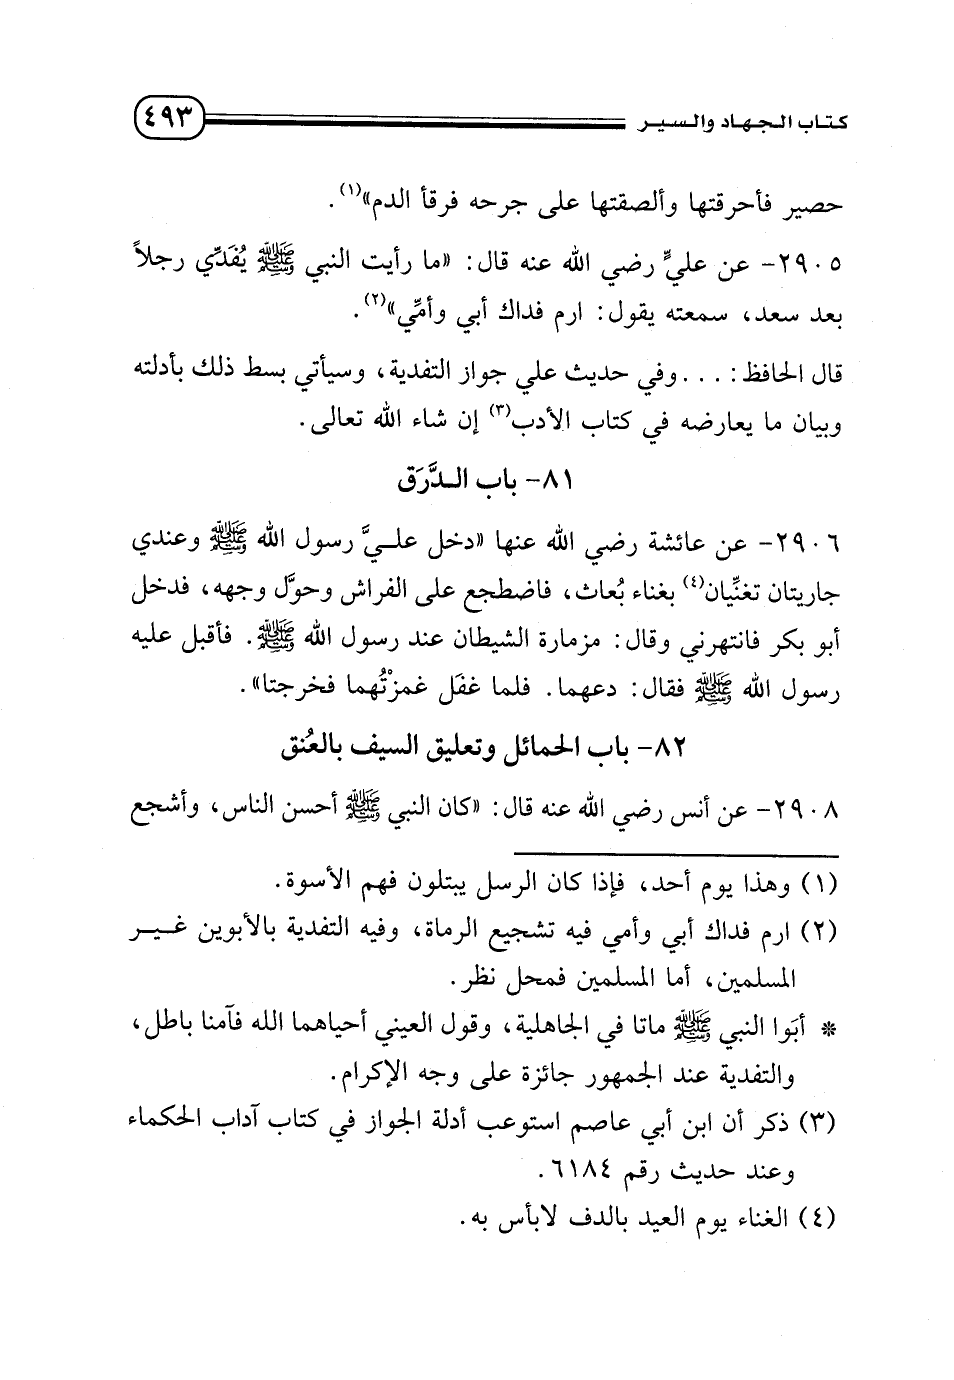 كتاب الجهاد والسير ٤٩٣
حصير فأحرقتها وألصقتها على جرحه فرقأ الدم»(١).
٢٩٠٥- عن عليٍّ رضي الله عنه قال: «ما رأيت النبي ﷺ يُفَدِّي رجلاً
بعد سعد، سمعته يقول: ارم فداك أبي وأمِّي»(٢).
قال الحافظ: . . .وفي حديث علي جواز التفدية، وسيأتي بسط ذلك بأدلته
وبيان ما يعارضه في كتاب الأدب(٣) إن شاء الله تعالى.
٨١- باب الدَّرَق
٢٩٠٦- عن عائشة رضي الله عنها «دخل عليَّ رسول الله ﷺ وعندي
جاريتان تغنِّيان(٤) بغناء بُعاث، فاضطجع على الفراش وحوَّل وجهه، فدخل
أبو بكر فانتهرني وقال: مزمارة الشيطان عند رسول الله ﷺ. فأقبل عليه
رسول الله ﷺ فقال: دعهما. فلما غفَل غمزْتُهما فخرجتا».
٨٢- باب الحمائل وتعليق السيف بالعُنق
٢٩٠٨- عن أنس رضي الله عنه قال: «كان النبي ﷺ أحسن الناس، وأشجع
(١) وهذا يوم أحد، فإذا كان الرسل يبتلون فهم الأسوة.
(٢) ارم فداك أبي وأمي فيه تشجيع الرماة، وفيه التفدية بالأبوين غير
المسلمين، أما المسلمين فمحل نظر.
* أبَوا النبي ﷺ ماتا في الجاهلية، وقول العيني أحياهما الله فآمنا باطل،
والتفدية عند الجمهور جائزة على وجه الإكرام.
(٣) ذكر أن ابن أبي عاصم استوعب أدلة الجواز في كتاب آداب الحكماء
وعند حديث رقم ٦١٨٤.
(٤) الغناء يوم العيد بالدف لابأس به.